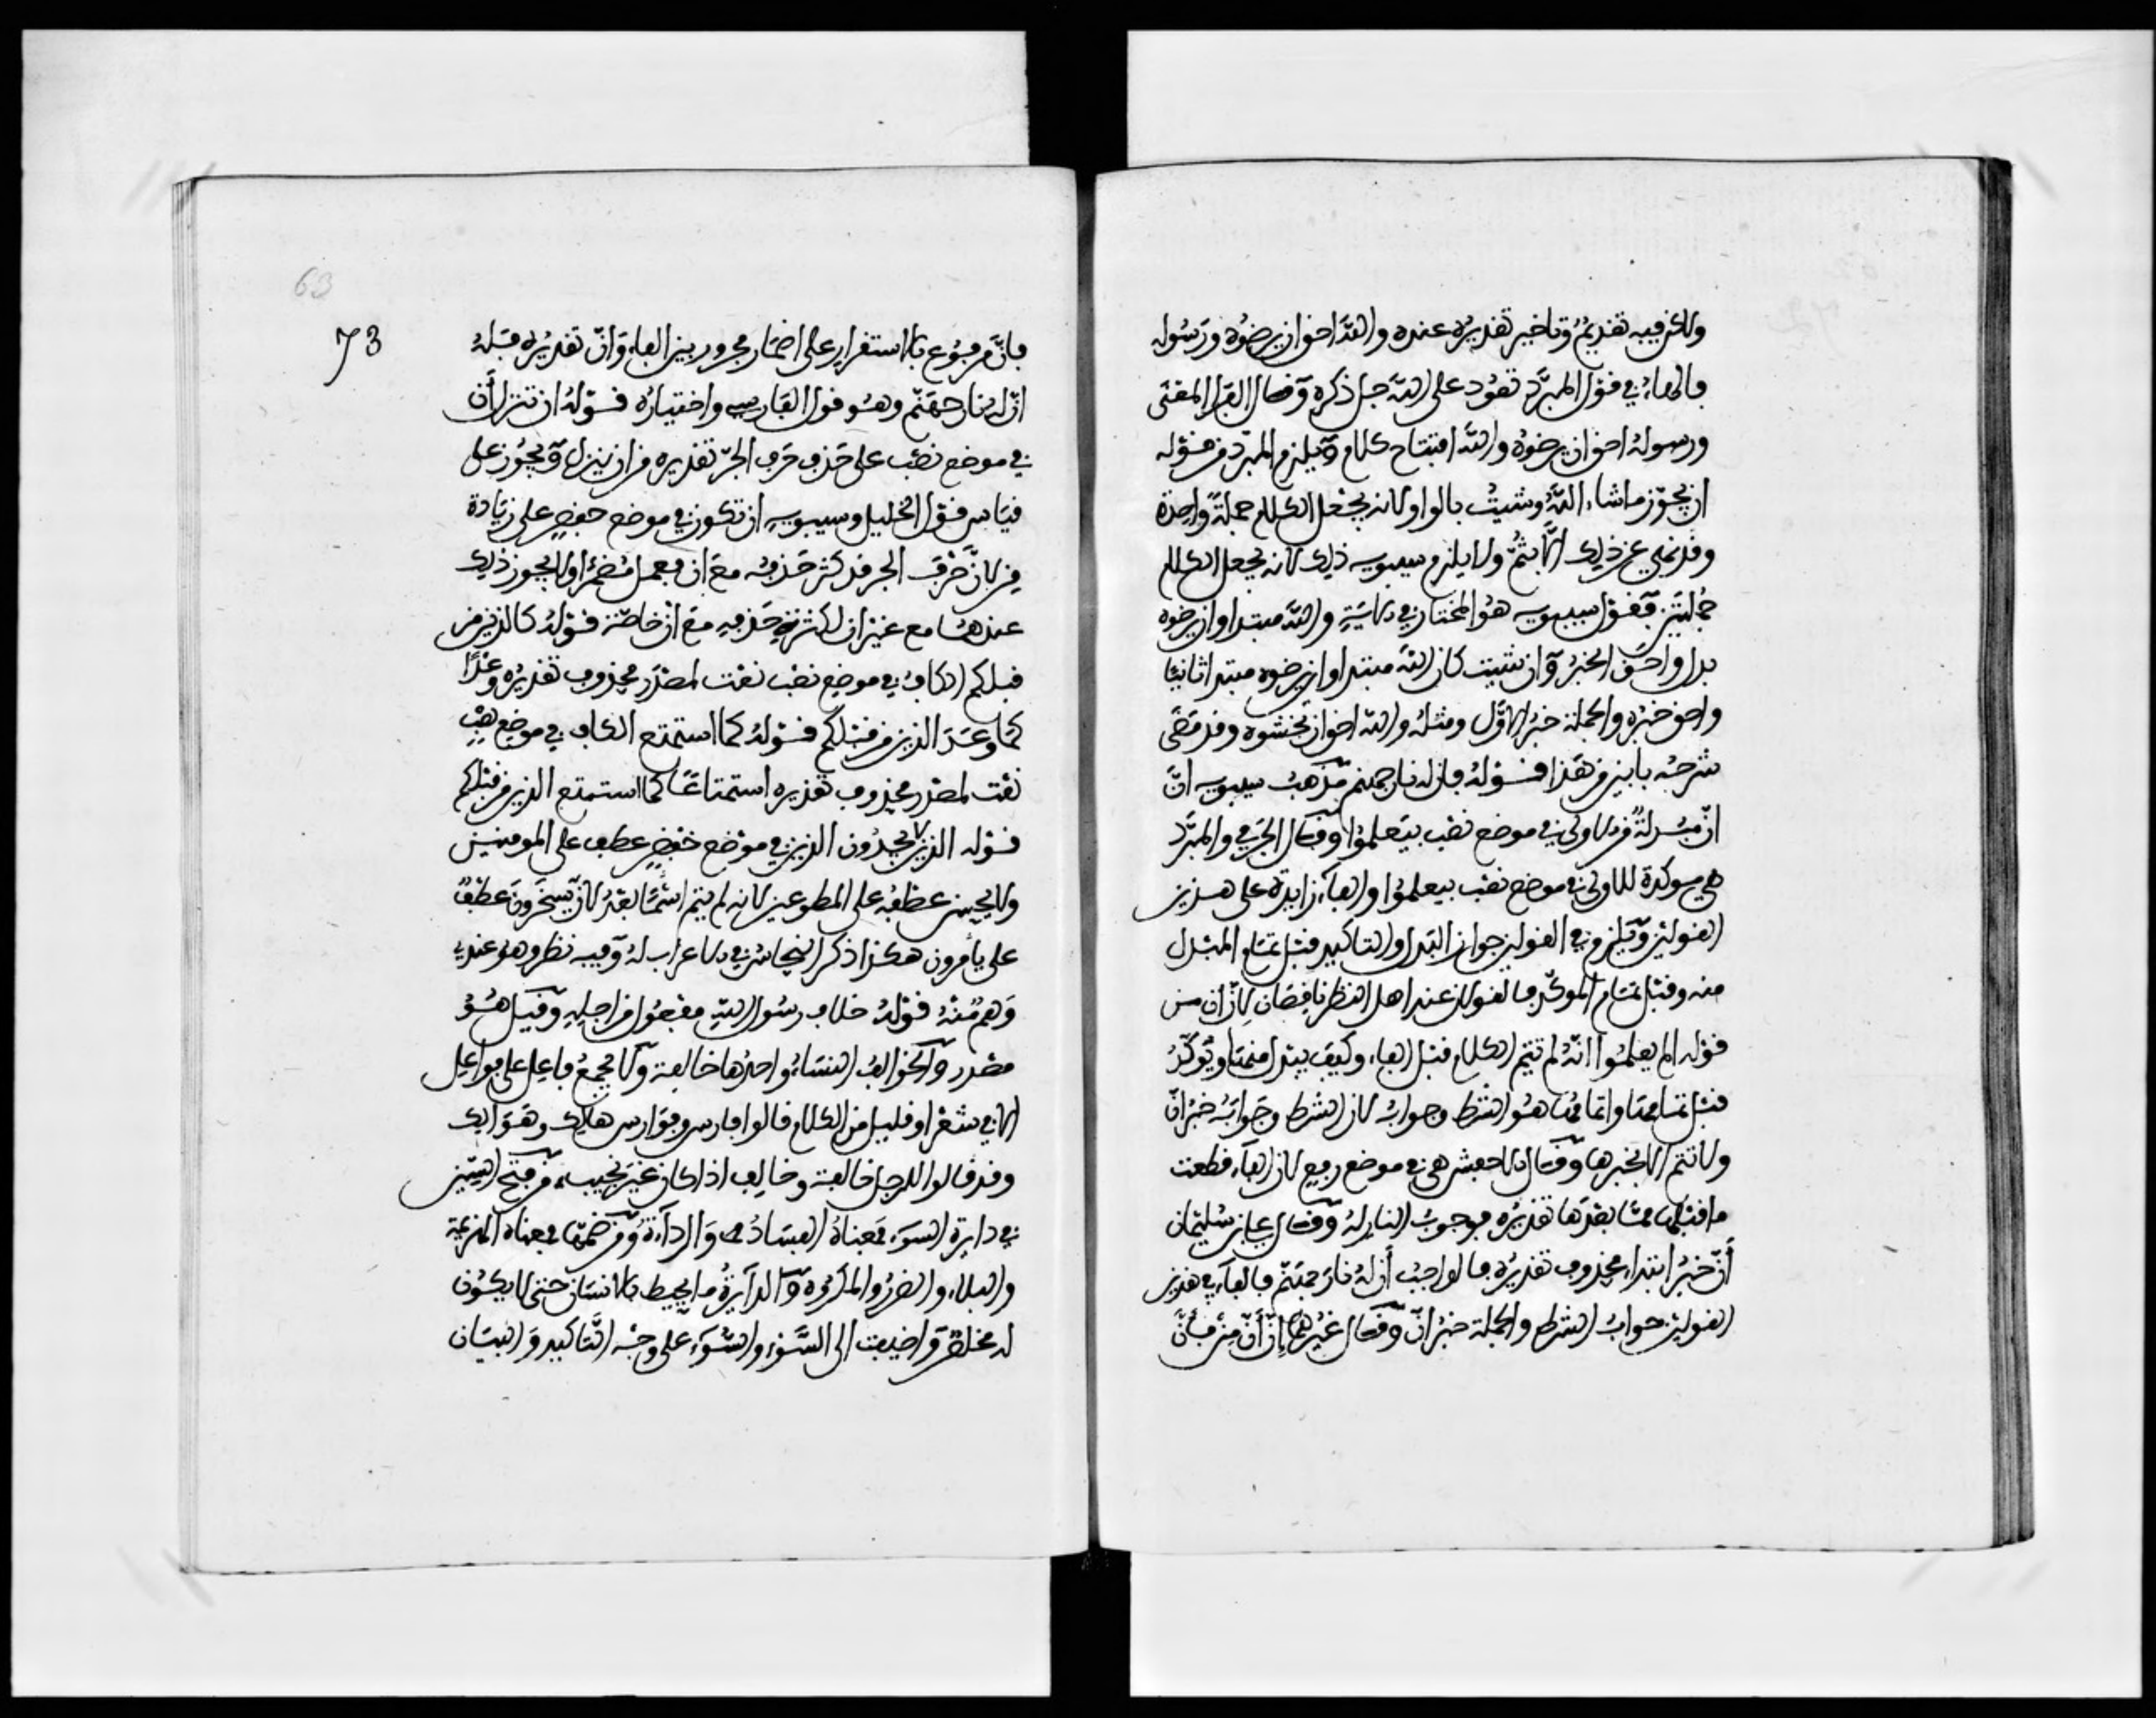 ولاكن فيه تقديم وتاخير تقديره عنده والله احق ان يرضوه ورسوله
فالهاء في قول المبرد تعود على الله جل ذكره وقال الفراء المعنى
ورسوله احق ان يرضوه والله افتتاح كلام ويلزم المبرد من قوله
ان يجوز ما شاء الله وشئت بالواو لانه يجعل الكلام جملة واحدة
وقد نهي عن ذلك الا بثم ولا يلزم سيبويه ذلك لانه يجعل الكلام
جملتين فقول سيبويه هو المختار في الاية والله مبتدا وان يرضوه
بدل واحق الخبر وان شيت كان الله مبتدا وان يرضوه مبتدا ثانيا
واحق خبره والجملة خبر الاول ومثله والله احق ان تخشوه وقد مضى
شرحه بابين من هذا قوله فان له نار جهنم مذهب سيبويه ان
ان مبدلة من الاولى في موضع نصب بيعلموا وقال الجرمي والمبرد
هي موكدة للاولى في موضع نصب بيعلموا والفاء زايدة على هذين
القولين ويلزم في القولين جواز البدل والتاكيد قبل تمام المبدل
منه وقبل تمام الموكد فالقولان عند اهل النظر ناقصان لان ان من
قوله الم يعلموا انه لم تتم الكلام قبل الفاء وكيف يبدل منها وتوكد
قبل تمامها وتمامها هو الشرط وجوابه لان الشرط وجوابه خبر ان
ولا تتم الا بخبرها وقال الاخفش هي في موضع رفع لان الفاء قطعت
ما قبلها مما بعدها تقديره فوجوب النار له وقال علي بن سليمان
أن خبر ابتداء محذوف تقديره فالواجب أن له نار جهنم فالفاء في هذين
القولين جواب الشرط والجملة خبر ان وقال غيرهما إن أن من فأن
73
63
فان مرفوع بالاستقرار على اضمار مجرور بين الفاء وان تقديره فله
ان له نار جهنم وهو قول الفارسي واختياره قوله ان تنزل أن
في موضع نصب على حذف حرف الجر تقديره من ان ينزل ويجوز على
قياس قول الخليل وسيبويه ان تكون في موضع خفض على زيادة
من لان حرف الجر قد كثر حذفه مع ان فعمل مضمرا ولا يجوز ذلك
عندهما مع غير ان لكثرة حذفه مع ان خاصة قوله كالذين من
قبلكم الكاف في موضع نصب نعت لمصدر محذوف تقديره وعدا
كما وعد الذين من قبلكم قوله كما استمتع الكاف في موضع نصب
نعت لمصدر محذوف تقديره استمتاعا كما استمتع الذين من قبلكم
قوله الذين لا يجدون الذين في موضع خفض عطف على المومنين
ولا يحسن عطفه على المطوعين لانه لم يتم اسما بعد لان يسخرون عطف
على يأمرون هكذا ذكر النحاس في الاعراب له وفيه نظر وهو عندي
وهم منه قوله خلاف رسول الله مفعول من اجله وقيل هو
مصدر والخوالف النساء واحدها خالفة ولا يجمع فاعل على فواعل
الا في شعر او قليل من الكلام قالوا فارس وفوارس هالك وهوالك
وقد قالوا للرجل خالفة وخالف اذا كان غير نجيب من فتح السين
في دايرة السوء فمعناه الفساد والرداءة ومن ضمها فمعناه الهزيمة
والبلاء والضرر والمكروه والدايرة ما يحيط بالانسان حتى لا يكون
له مخلص واضيفت الى السوء والسوء على وجه التاكيد والبيان